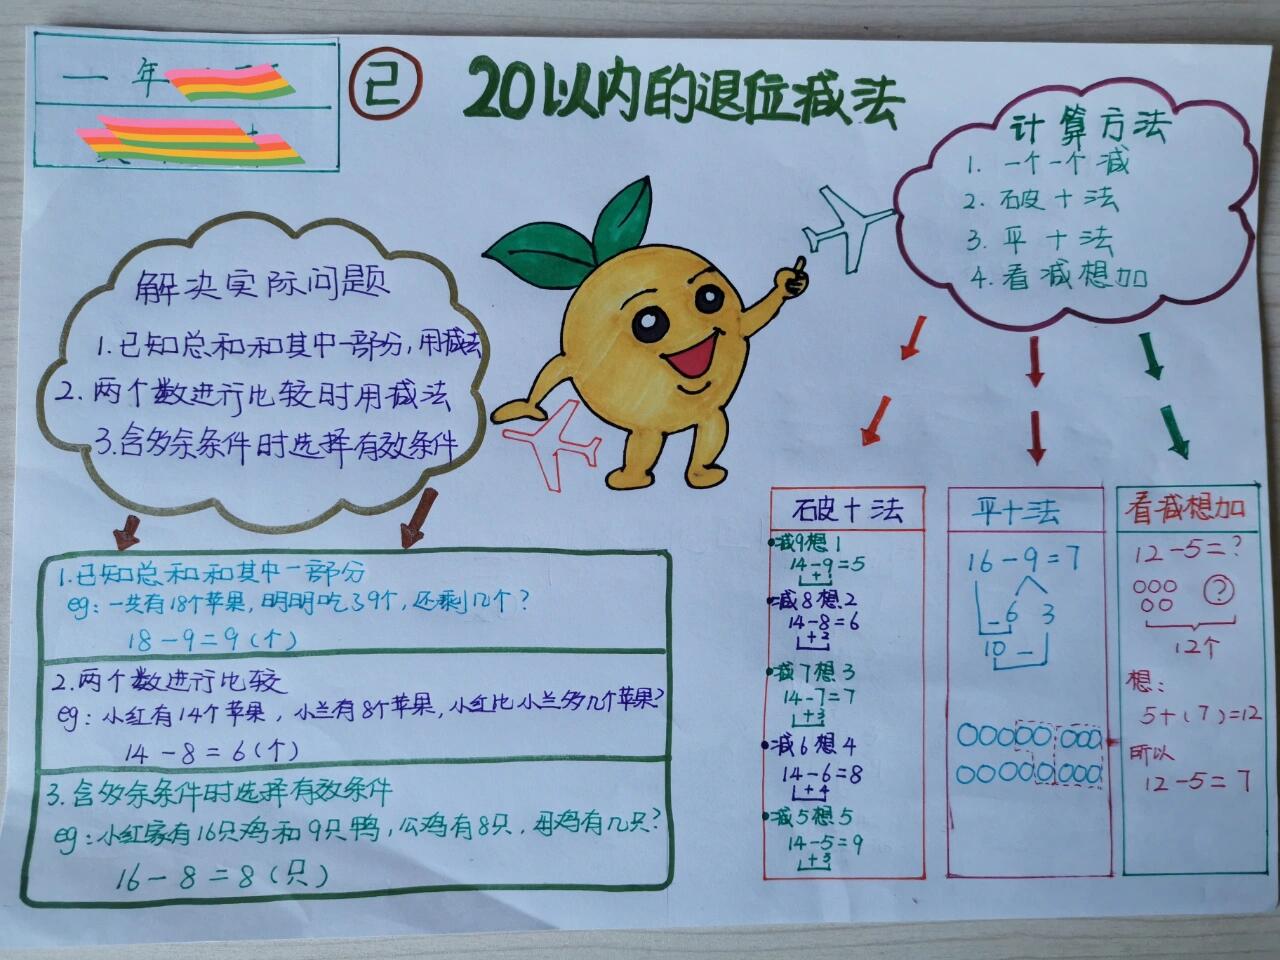 一 年
己
20以内的退位减法
计算方法
1. 一个一个减
2. 破十法
3. 平十法
4. 看减想加
解决实际问题
1.已知总和和其中一部分,用减法
2.两个数进行比较时用减法
3.含多余条件时选择有效条件
1.已知总和和其中一部分
eg:一共有18个苹果,明明吃了9个,还剩几个?
18-9=9(个)
2.两个数进行比较
eg:小红有14个苹果,小兰有8个苹果,小红比小兰多几个苹果?
14-8=6(个)
3.含多余条件时选择有效条件
eg:小红家有16只鸡和9只鸭,公鸡有8只,母鸡有几只?
16-8=8(只)
破十法
减9想1
14-9=5
+1
减8想2
14-8=6
+2
减7想3
14-7=7
+3
减6想4
14-6=8
+4
减5想5
14-5=9
+3
平十法
16-9=7
-6 3
10 -
看减想加
12-5=?
?
12个
想:
5+(7)=12
所以
12-5=7